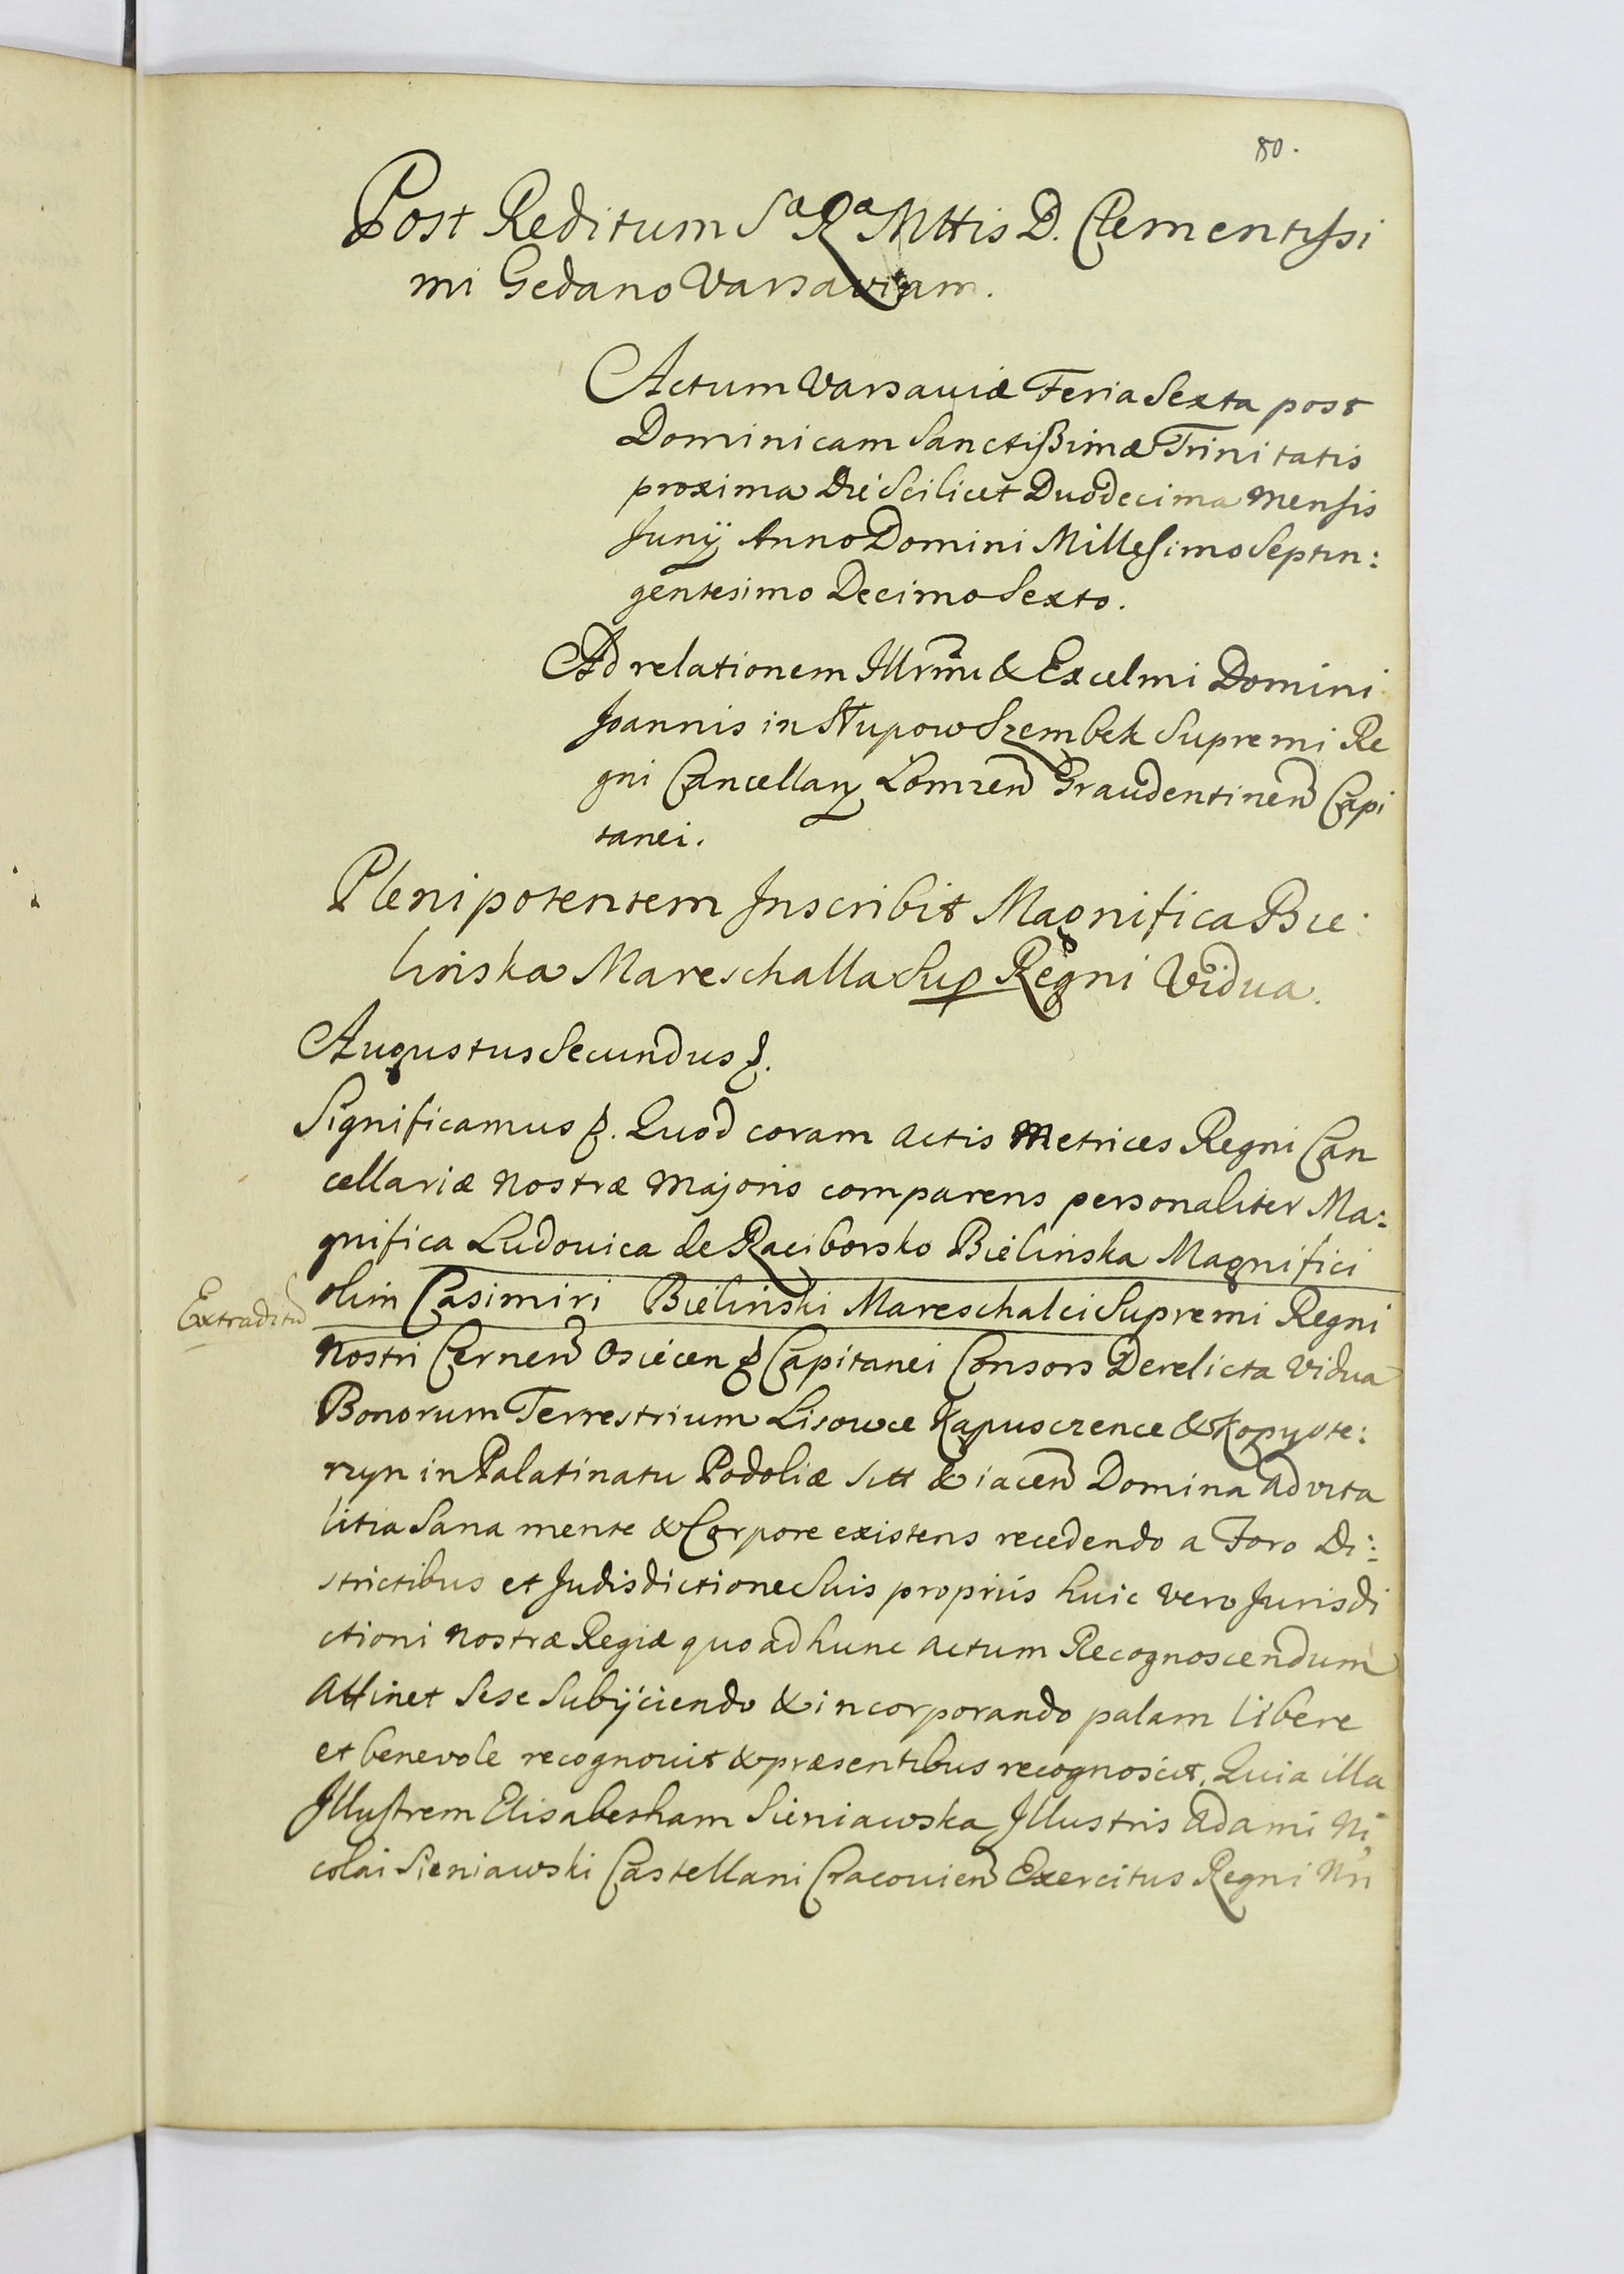 80.
Post Reditum Sᵃ Rᵃ Mttis D. Clementissi
mi Gedano Varsaviam.
Actum Varsaviæ Feria Sexta post
Dominicam Sanctissimæ Trinitatis
proxima Die Scilicet Duodecima Mensis
Junij Anno Domini Millesimo Septin:
gentesimo Decimo Sexto.
Ad relationem Illrmi & Excelmi Domini
Joannis in Słupow Szembek Supremi Re
gni Cancellarij Lomzen Graudentinen Capi
tanei.
Plenipotentem Inscribit Magnifica Bie:
linska Mareschalla Sup Regni Vidua.
Augustus Secundus &.
Significamus &. Quod coram Actis Metrices Regni Can
cellariæ Nostræ Majoris comparens personaliter Ma:
gnifica Ludovica de Raciborsko Bielińska Magnifici
olim Casimiri Bieliński Mareschalci Supremi Regni
Extraditū
Nostri Cernen Osiecen & Capitanei Consors Derelicta Vidua
Bonorum Terrestrium Lisowce Kapuscrence & Kopyste:
rzyn in Palatinatu Podoliæ sitt & iacen Domina Advita
litia Sana mente & Corpore existens recedendo a Foro Di:
strictibus et Judisdictione Suis proprijs huic vero Jurisdi
ctioni Nostræ Regiæ quo ad hunc Actum Recognoscendum
Attinet Sese Subijciendo & incorporando palam libere
et benevole recognovit & præsentibus recognoscit. Quia illa
Illustrem Elisabetham Sieniawska Illustris Adami Ni
colai Sieniawski Castellani Cracovien Exercitus Regni Nri